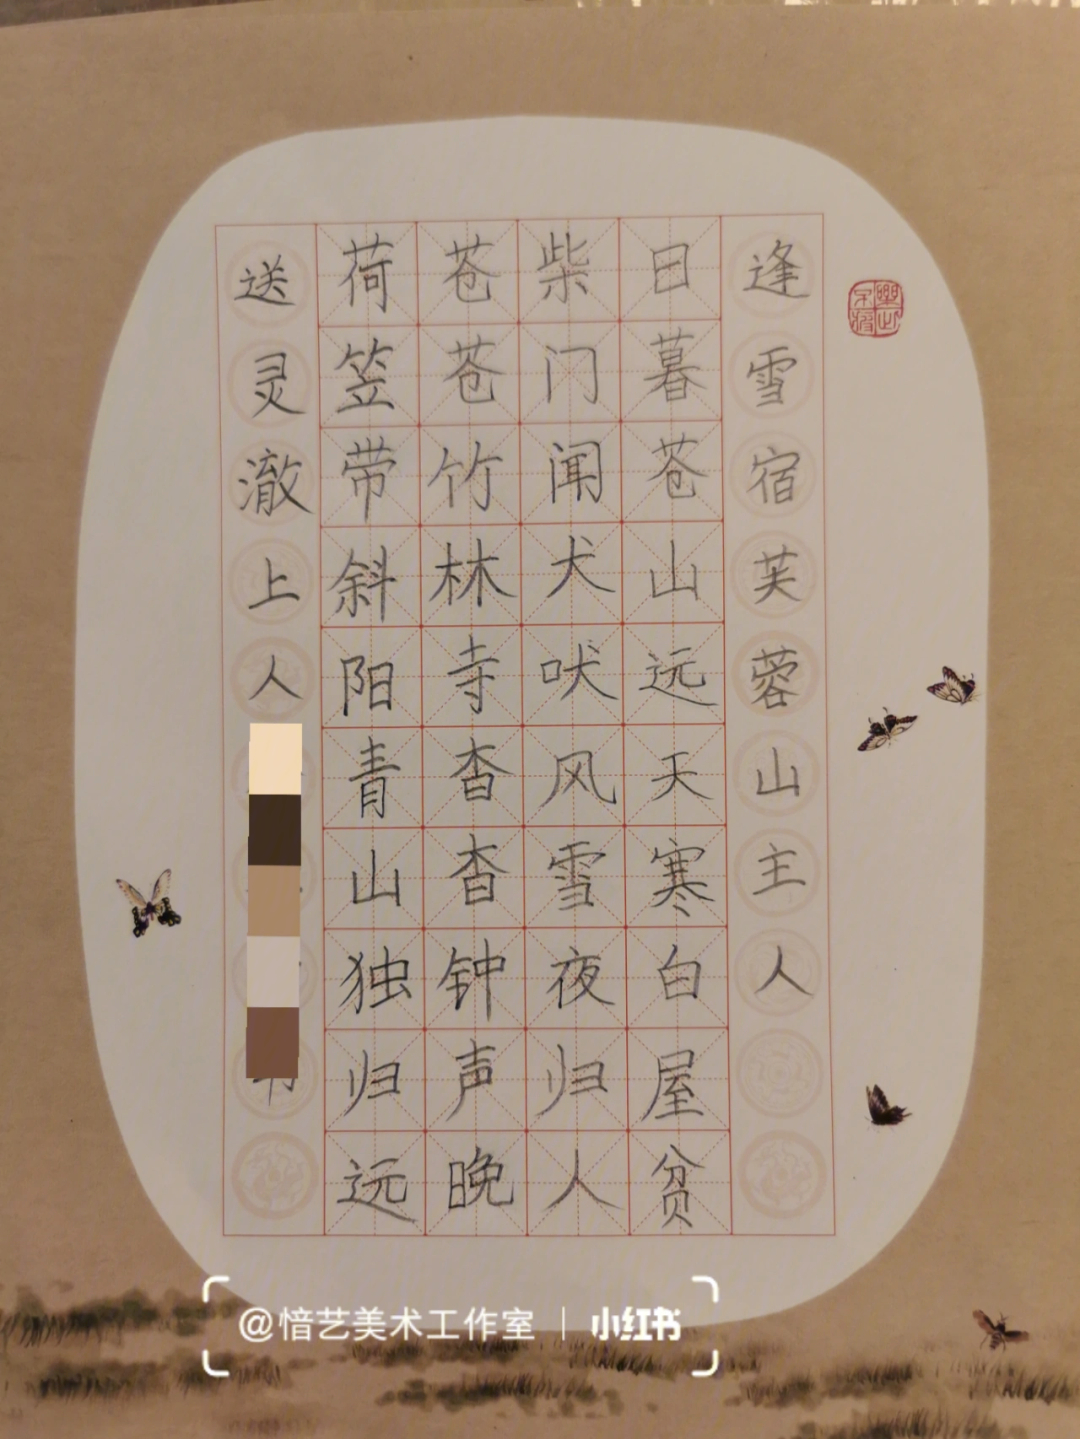 逢雪宿芙蓉山主人
日暮苍山远天寒白屋贫
柴门闻犬吠风雪夜归人
苍苍竹林寺杳杳钟声晚
荷笠带斜阳青山独归远
送灵澈上人
书
@愔艺美术工作室 | 小红书